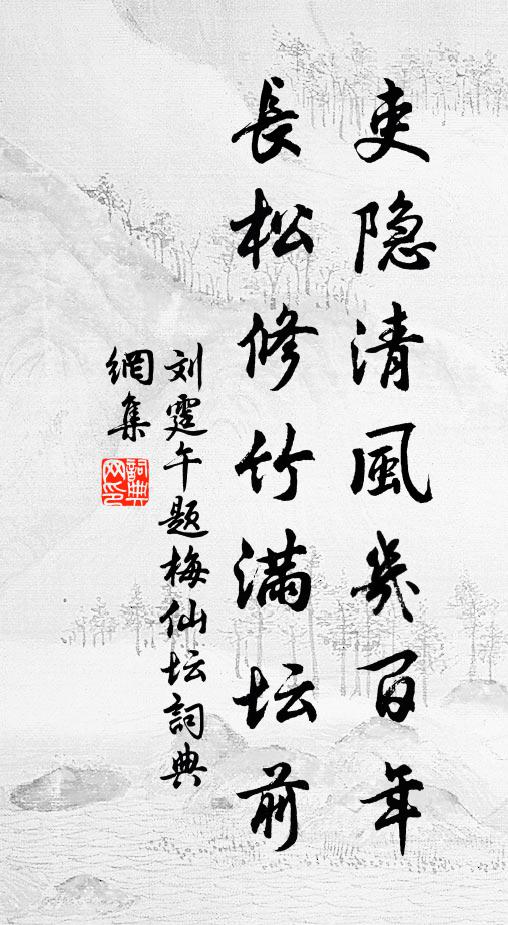 吏隐清風幾百年
長松修竹满坛前
刘霆午题梅仙坛詞典
網集
詞典网印